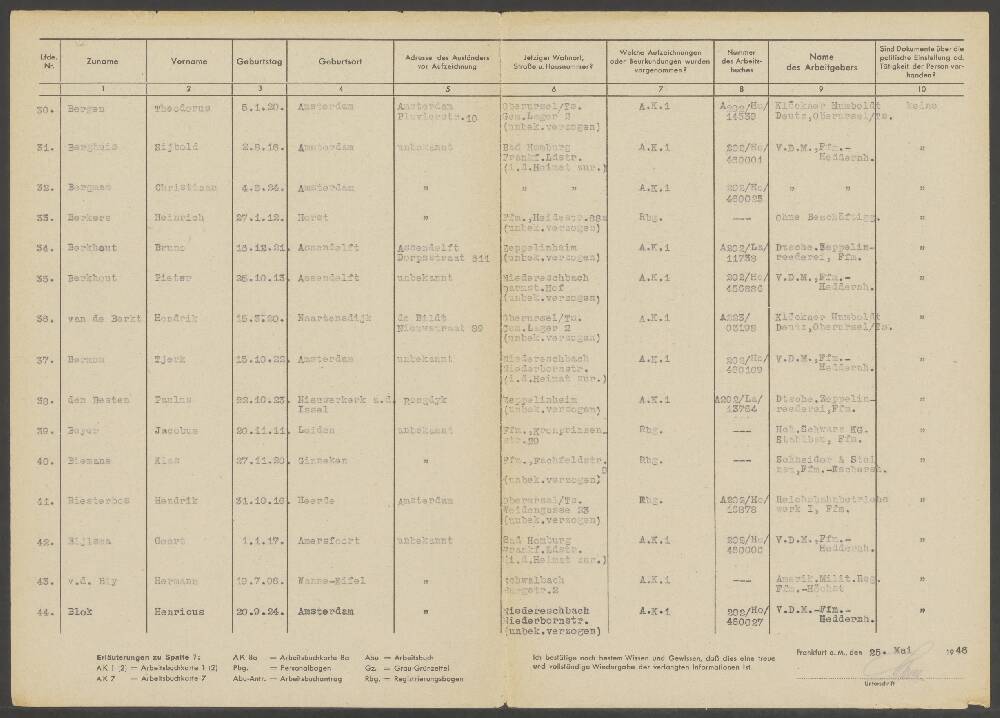 Lfde. Nr. Zuname Vorname Geburtstag Geburtsort Adresse des Ausländers vor Aufzeichnung Jetziger Wohnort, Straße u. Hausnummer? Welche Aufzeichnungen oder Beurkundungen wurden vorgenommen? Nummer des Arbeitsbuches Name des Arbeitgebers Sind Dokumente über die politische Einstellung od. Tätigkeit der Person vorhanden?
1 2 3 4 5 6 7 8 9 10
30. Bergen Theodorus 5.1.20. Amsterdam Amsterdam Oberursel/Ts. A.K.1 Klöckner Humboldt keine
Pluvierstr.10 Gem.Lager 2 14539 Deutz,Oberursel/Ts.
(unbek.verzogen)
31. Berghuis Sijbold 2.8.16. Amsterdam unbekannt Bad Homburg A.K.1 202/Ho/ V.D.M.,Ffm.- "
Frankf.Ldstr. 480001 Heddernh.
(i.d.Heimat zur.)
32. Bergman Christiaan 4.8.24. Amsterdam " " " A.K.1 202/Ho/ " " "
480025
33. Berkers Heinrich 27.1.12. Horst " Ffm.,Heidestr.88a Rbg. --- Ohne Beschäftigg. "
(unbek.verzogen)
34. Berkhout Bruno 16.12.21. Assendelft Assendelft Zeppelinheim A.K.1 A202/La/ Dtsche.Zeppelin- "
Dorpsstraat 511 (unbek.verzogen) 11739 reederei, Ffm.
35. Berkhout Pieter 25.10.13. Assendelft unbekannt Niedereschbach A.K.1 202/Ho/ V.D.M.,Ffm.- "
Darmst.Hof 456886 Heddernh.
(unbek.verzogen)
36. van de Berkt Hendrik 15.3.20. Maartensdijk de Bildt Oberursel/Ts. A.K.1 A223/ Klöckner Humboldt "
Nieuwstraat 89 Gem.Lager 2 03198 Deutz,Oberursel/Ts.
(unbek.verzogen)
37. Berman Tjerk 15.10.22. Amsterdam unbekannt Niedereschbach A.K.1 202/Ho/ V.D.M.,Ffm.- "
Niederbornstr. 480109 Heddernh.
(i.d.Heimat zur.)
38. den Besten Paulus 22.10.23. Nieuwerkerk a.d. Rosgdyk Zeppelinheim A.K.1 A202/La/ Dtsche.Zeppelin- "
Issel (unbek.verzogen) 13764 reederei,Ffm.
39. Beyer Jacobus 20.11.11. Leiden unbekannt Ffm.,Kronprinzen- Rbg. --- Hch.Schwarz KG. "
str.20 Stahlbau, Ffm.
40. Biemans Klas 27.11.20. Ginneken " Ffm.,Fachfeldstr. Rbg. --- Schneider & "
(unbek.verzogen)
41. Biesterbos Hendrik 31.10.16. Heerde Amsterdam Oberursel/Ts. Rbg. A202/Ho/ Reichsbahnbetriebs "
Weidengasse 23 15878 werk I, Ffm.
(unbek.verzogen)
42. Bijlsma Geert 1.1.17. Amersfoort unbekannt Bad Homburg A.K.1 202/Ho/ V.D.M.,Ffm.- "
Frankf.Ldstr. Heddernh.
(i.d.Heimat zur.)
43. v.d. Bly Hermann 19.7.06. Wanne-Eifel " Schwalbach A.K.1 --- Amerik.Milit.Reg. "
Burgstr.2 Ffm.-Höchst
44. Blok Henricus 20.9.24. Amsterdam " Niedereschbach A.K.1 202/Ho/ V.D.M.-Ffm.- "
Niederbornstr. 480027 Heddernh.
(unbek.verzogen)
Erläuterungen zu Spalte 7: AK 8a — Arbeitsbuchkarte 8a Abu — Arbeitsbuch
AK 1 (2) — Arbeitsbuchkarte 1 (2) Pbg. — Personalbogen Gz. — Grau-Grünzettel
AK 7 — Arbeitsbuchkarte 7 Abu-Antr. — Arbeitsbuchantrag Rbg. — Registrierungsbogen
Ich bestätige nach bestem Wissen und Gewissen, daß dies eine treue
und vollständige Wiedergabe der verlangten Informationen ist.
Frankfurt a. m., den 25. Mai 1946
Unterschrift